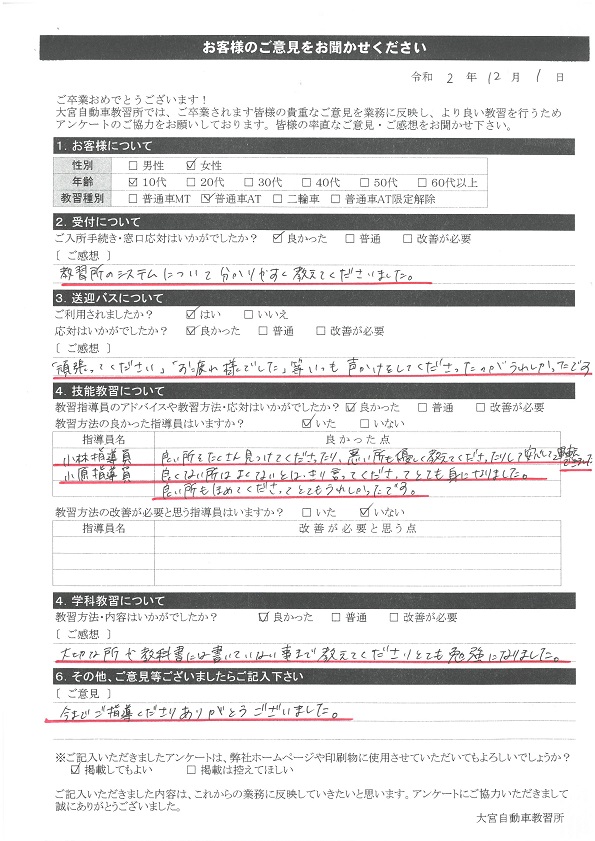 お客様のご意見をお聞かせください
令和 2 年 12 月 1 日
ご卒業おめでとうございます！
大宮自動車教習所では、ご卒業されます皆様の貴重なご意見を業務に反映し、より良い教習を行うため
アンケートのご協力をお願いしております。皆様の率直なご意見・ご感想をお聞かせ下さい。
1. お客様について
性別 □ 男性 ☑ 女性
年齢 ☑ 10代 □ 20代 □ 30代 □ 40代 □ 50代 □ 60代以上
教習種別 □ 普通車MT ☑ 普通車AT □ 二輪車 □ 普通車AT限定解除
2. 受付について
ご入所手続き・窓口応対はいかがでしたか？ ☑ 良かった □ 普通 □ 改善が必要
[ ご感想 ]
教習所のシステムについて分かりやすく教えてくださいました。
3. 送迎バスについて
ご利用されましたか？ ☑ はい □ いいえ
応対はいかがでしたか？ ☑ 良かった □ 普通 □ 改善が必要
[ ご感想 ]
「頑張ってください」「お疲れ様でした」等いつも声かけをしてくださったのがうれしかったです
4. 技能教習について
教習指導員のアドバイスや教習方法・応対はいかがでしたか？ ☑ 良かった □ 普通 □ 改善が必要
教習方法の良かった指導員はいますか？ ☑ いた □ いない
指導員名 良かった点
小林指導員 良い所をたくさん見つけてくださったり、悪い所も優しく教えてくださったりして安心して運転できました
小原指導員 良くない所はよくないとはっきり言ってくださってとても身になりました。
良い所もほめてくださってとてもうれしかったです。
教習方法の改善が必要と思う指導員はいますか？ □ いた ☑ いない
指導員名 改善が必要と思う点
4. 学科教習について
教習方法・内容はいかがでしたか？ ☑ 良かった □ 普通 □ 改善が必要
[ ご感想 ]
大切な所や教科書には書いていない事まで教えてくださりとても勉強になりました。
6. その他、ご意見等ございましたらご記入下さい
[ ご意見 ]
今までご指導くださりありがとうございました。
※ご記入いただきましたアンケートは、弊社ホームページや印刷物に使用させていただいてもよろしいでしょうか？
☑ 掲載してもよい □ 掲載は控えてほしい
ご記入いただきました内容は、これからの業務に反映していきたいと思います。アンケートにご協力いただきまして
誠にありがとうございました。
大宮自動車教習所